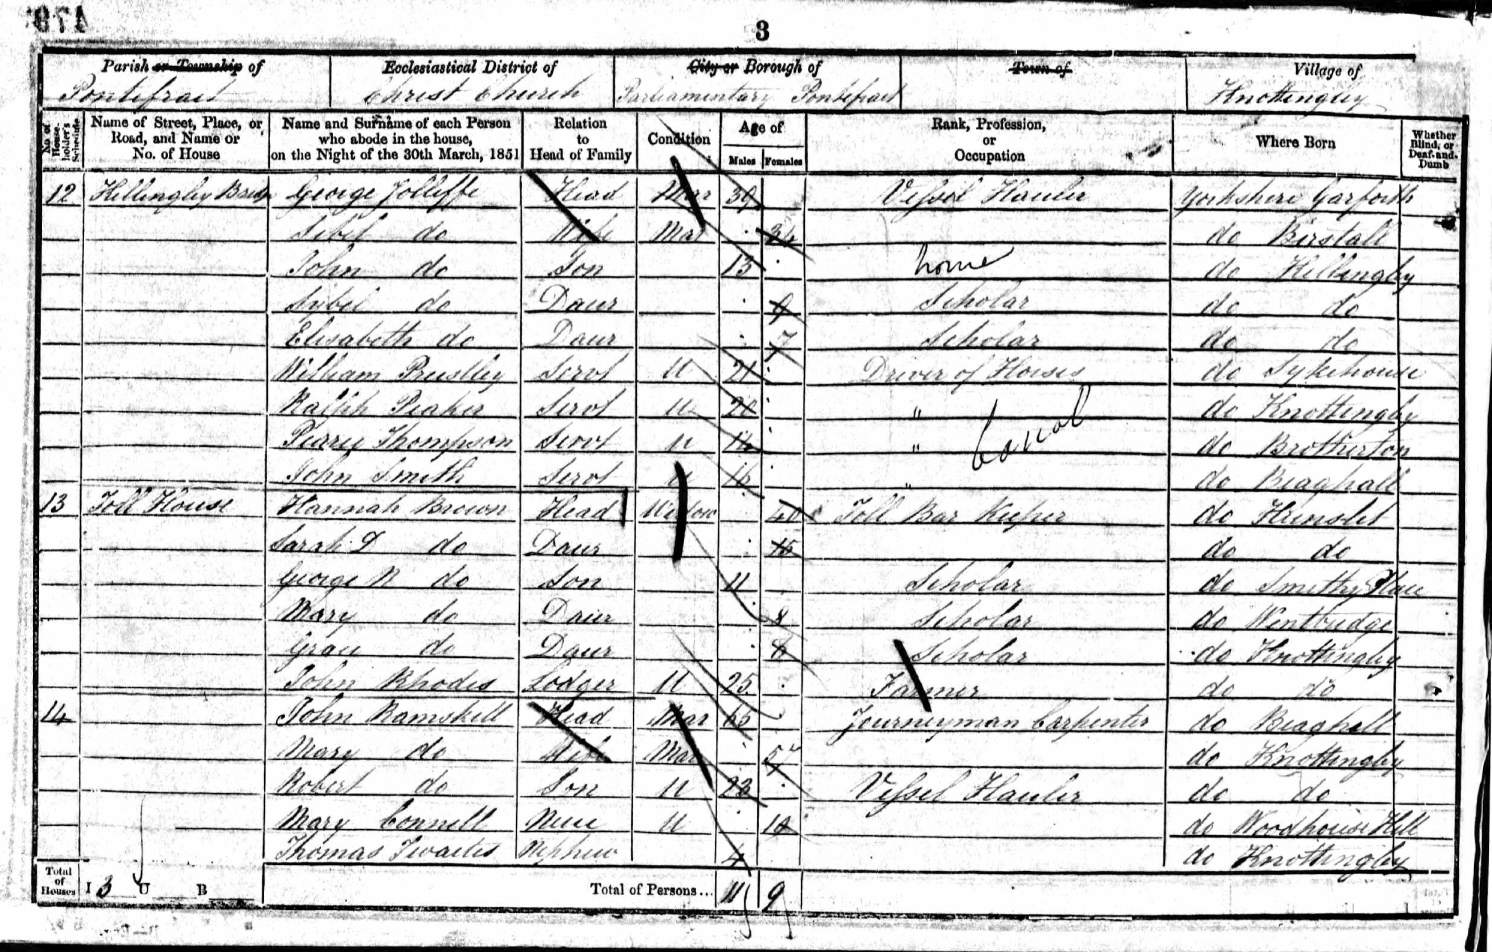 3
Parish or Township of Ecclesiastical District of City or Borough of Town of Village of
Pontefract Christ Church Parliamentary Pontefract Knottingley
No. of House-holder's Schedule Name of Street, Place, or Road, and Name or No. of House Name and Surname of each Person who abode in the house, on the Night of the 30th March, 1851 Relation to Head of Family Condition Age of Males Females Rank, Profession, or Occupation Where Born Whether Blind, or Deaf-and-Dumb
12 Kellingley Bridge George Jolliffe Head Mar 39 Vessel Hauler Yorkshire Garforth
Sibel do Wife Mar 34 do Birstall
John do Son 13 home do Kellingley
Sybel do Daur 9 Scholar do do
Elisabeth do Daur 7 Scholar do do
William Prestley Servt U 21 Driver of Horses do Sykehouse
Ralph Peaker Servt U 20 " do Knottingley
Thompson Servt U 14 " Canal do Brotherton
John Smith Servt U 16 " do Beaghall
13 Toll House Hannah Brown Head Widow 40 Toll Bar Keeper do Hunslet
Sarah do Daur 15 do do
George N do Son 11 Scholar do Smithy
Mary do Daur 8 Scholar do Wentbridge
Grace do Daur 6 Scholar do Knottingley
John Rhodes Lodger U 25 Farmer do do
14 John Ramskill Head Mar 65 Journeyman Carpenter do Beaghall
Mary do Wife Mar 57 do Knottingley
Robert do Son U 23 Vessel Hauler do do
Mary Connell Niece U 18 do Woodhouse Hill
Thomas Twaites Nephew 4 do Knottingley
Total of Houses I 3 U B Total of Persons... 11 9